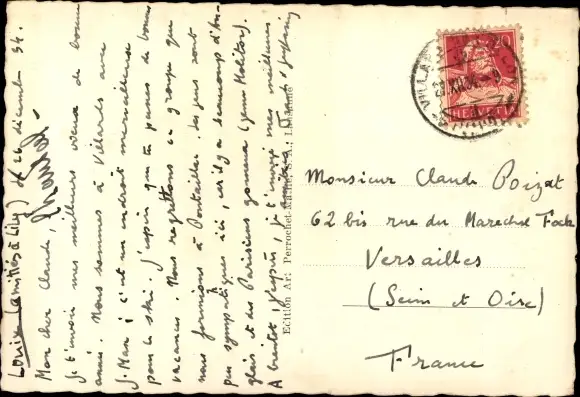 le 26 décembre 34.
Mon cher Claude,
je t'envoie mes meilleurs voeux de bonne
année. Nous sommes à Villards avec
J. Marc; c'est un endroit merveilleux
pour le ski. J'espère que tu passes de bonnes
vacances. Nous regrettons ce groupe que
nous formions à Pontaillac. Les gens sont
peu sympatiques ici, car il y a beaucoup d'An-
glais et des Parisiens genre (gym Molitor).
A bientôt, j'espère, je t'envoie mes meilleures
amitiés
Louise (amitiés à Lily)
Edition Art: Perrochet-Matile S.A.: Lausanne
20
HELVETIA
VILLARS
Monsieur Claude Poizat
62 bis rue du Marechal Foch
Versailles
(Seine et Oise)
France